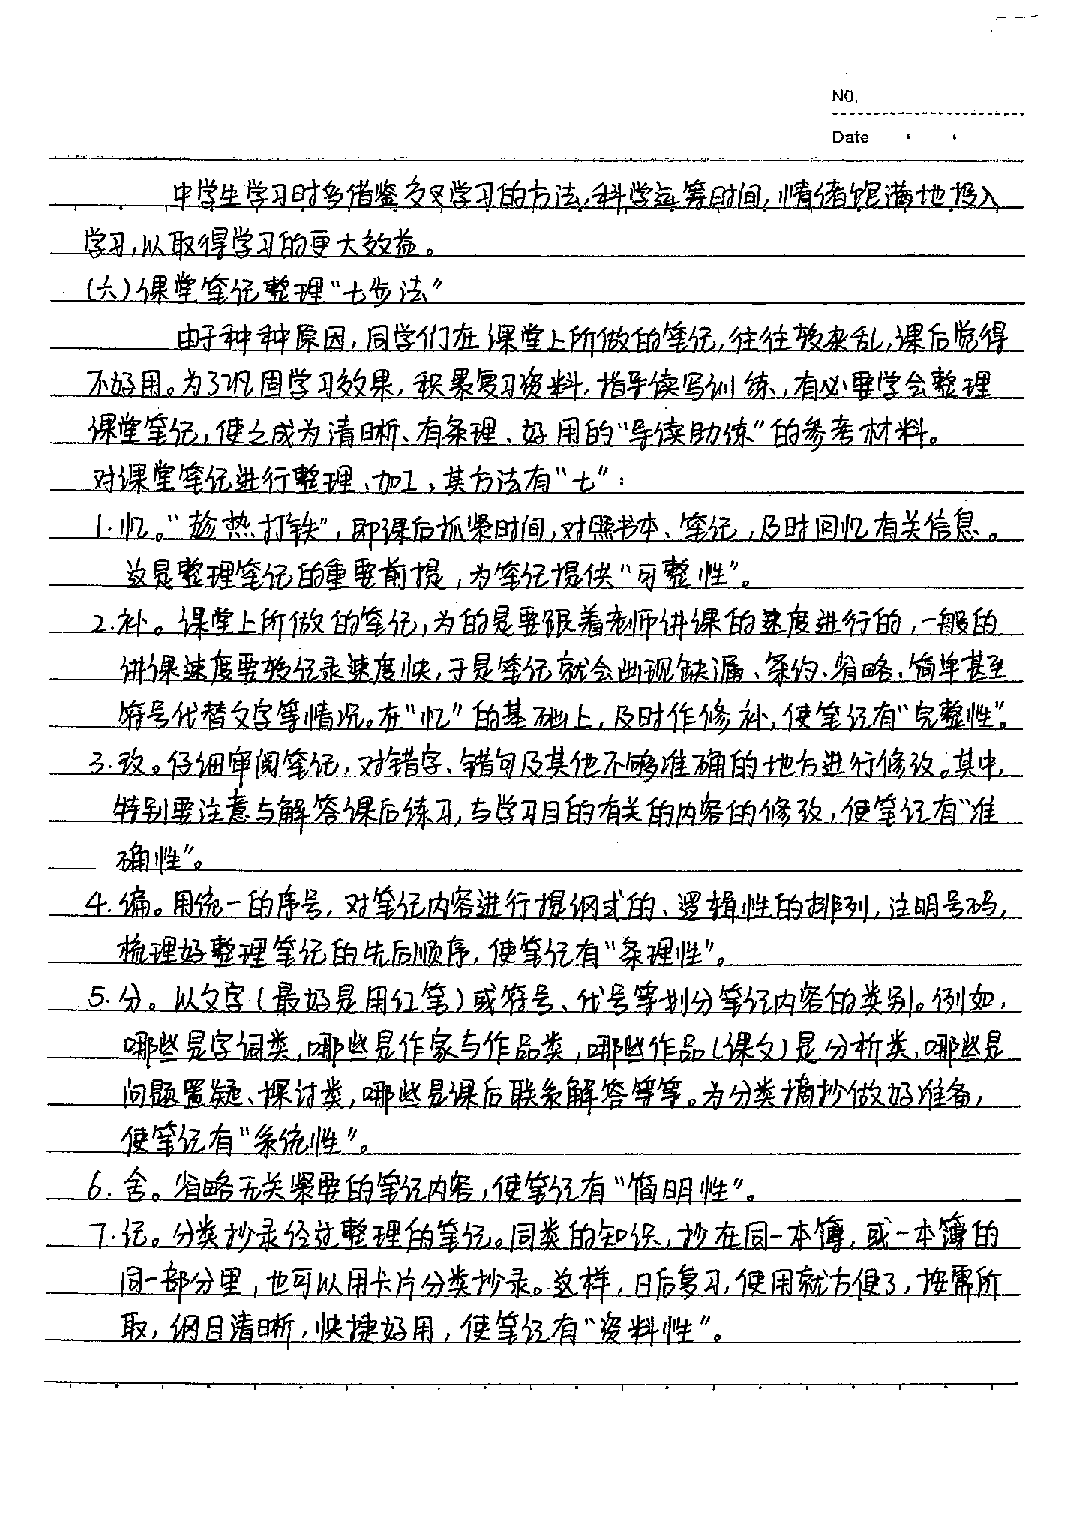 NO.
Date
中学生学习时多借鉴交叉学习的方法,科学运筹时间,情绪饱满地投入
学习,以取得学习的更大效益。
(六)课堂笔记整理“七步法”
由于种种原因,同学们在课堂上所做的笔记,往往较杂乱,课后觉得
不好用。为了巩固学习效果,积累复习资料,指导读写训练,有必要学会整理
课堂笔记,使之成为清晰、有条理、好用的“导读助练”的参考材料。
对课堂笔记进行整理、加工,其方法有“七”:
1.忆。“趁热打铁”,即课后抓紧时间,对照书本、笔记,及时回忆有关信息。
这是整理笔记的重要前提,为笔记提供“可整性”。
2.补。课堂上所做的笔记,为的是要跟着老师讲课的速度进行的,一般的
讲课速度要较记录速度快,于是笔记就会出现缺漏、条约、省略、简单甚至
符号代替文字等情况。在“忆”的基础上,及时作修补,使笔记有“完整性”。
3.改。仔细审阅笔记,对错字、错句及其他不够准确的地方进行修改。其中,
特别要注意与解答课后练习,与学习目的有关的内容的修改,使笔记有“准
确性”。
4.编。用统一的序号,对笔记内容进行提纲式的、逻辑性的排列,注明号码,
梳理好整理笔记的先后顺序,使笔记有“条理性”。
5.分。以文字(最好是用红笔)或符号、代号等划分笔记内容的类别。例如,
哪些是字词类,哪些是作家与作品类,哪些作品(课文)是分析类,哪些是
问题置疑、探讨类,哪些是课后联系解答等等。为分类摘抄做好准备,
使笔记有“系统性”。
6.舍。省略无关紧要的笔记内容,使笔记有“简明性”。
7.记。分类抄录经过整理的笔记。同类的知识,抄在同一本簿,或一本簿的
同一部分里,也可以用卡片分类抄录。这样,日后复习,使用就方便了,按需所
取,纲目清晰,快捷好用,使笔记有“资料性”。